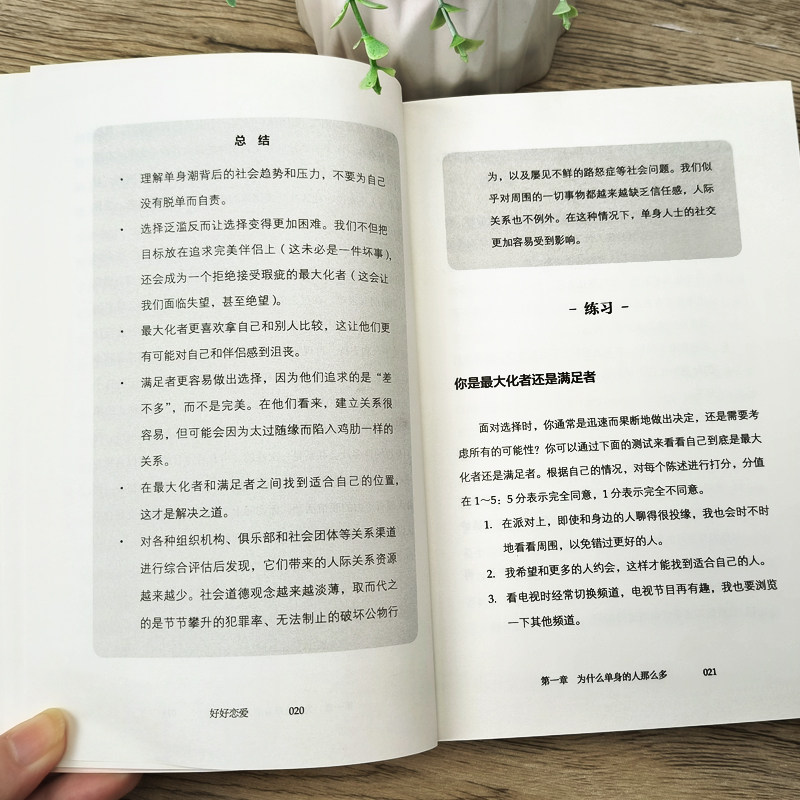 总 结
· 理解单身潮背后的社会趋势和压力，不要为自己
没有脱单而自责。
· 选择泛滥反而让选择变得更加困难。我们不但把
目标放在追求完美伴侣上（这未必是一件坏事），
还会成为一个拒绝接受瑕疵的最大化者（这会让
我们面临失望，甚至绝望）。
· 最大化者更喜欢拿自己和别人比较，这让他们更
有可能对自己和伴侣感到沮丧。
· 满足者更容易做出选择，因为他们追求的是“差
不多”，而不是完美。在他们看来，建立关系很
容易，但可能会因为太过随缘而陷入鸡肋一样的
关系。
· 在最大化者和满足者之间找到适合自己的位置，
这才是解决之道。
· 对各种组织机构、俱乐部和社会团体等关系渠道
进行综合评估后发现，它们带来的人际关系资源
越来越少。社会道德观念越来越淡薄，取而代之
的是节节攀升的犯罪率、无法制止的破坏公物行
好好恋爱 020
为，以及屡见不鲜的路怒症等社会问题。我们似
乎对周围的一切事物都越来越缺乏信任感，人际
关系也不例外。在这种情况下，单身人士的社交
更加容易受到影响。
– 练习 –
你是最大化者还是满足者
面对选择时，你通常是迅速而果断地做出决定，还是需要考
虑所有的可能性？你可以通过下面的测试来看看自己到底是最大
化者还是满足者。根据自己的情况，对每个陈述进行打分，分值
在 1～5：5 分表示完全同意，1 分表示完全不同意。
1. 在派对上，即使和身边的人聊得很投缘，我也会时不时
地看看周围，以免错过更好的人。
2. 我希望和更多的人约会，这样才能找到适合自己的人。
3. 看电视时经常切换频道，电视节目再有趣，我也要浏览
一下其他频道。
第一章 为什么单身的人那么多 021